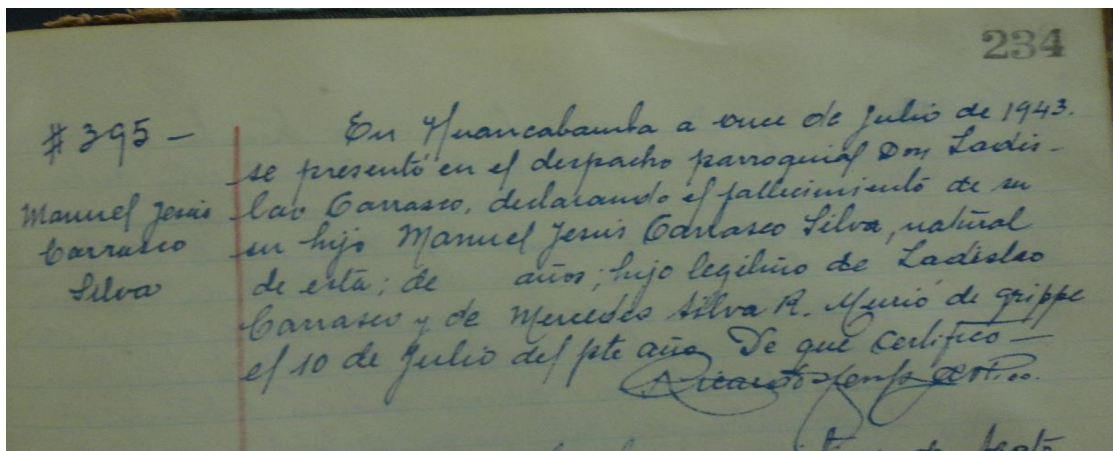 234
# 395 —
Manuel Jesús
Carrasco
Silva
En Huancabamba a once de Julio de 1943.
se presentó en el despacho parroquial Don Ladis-
lao Carrasco, declarando el fallecimiento de su
su hijo Manuel Jesús Carrasco Silva, natural
de esta; de años; hijo legítimo de Ladislao
Carrasco y de Mercedes Silva R. Murió de grippe
el 10 de Julio del pte año. De que certifico —
Ricardo